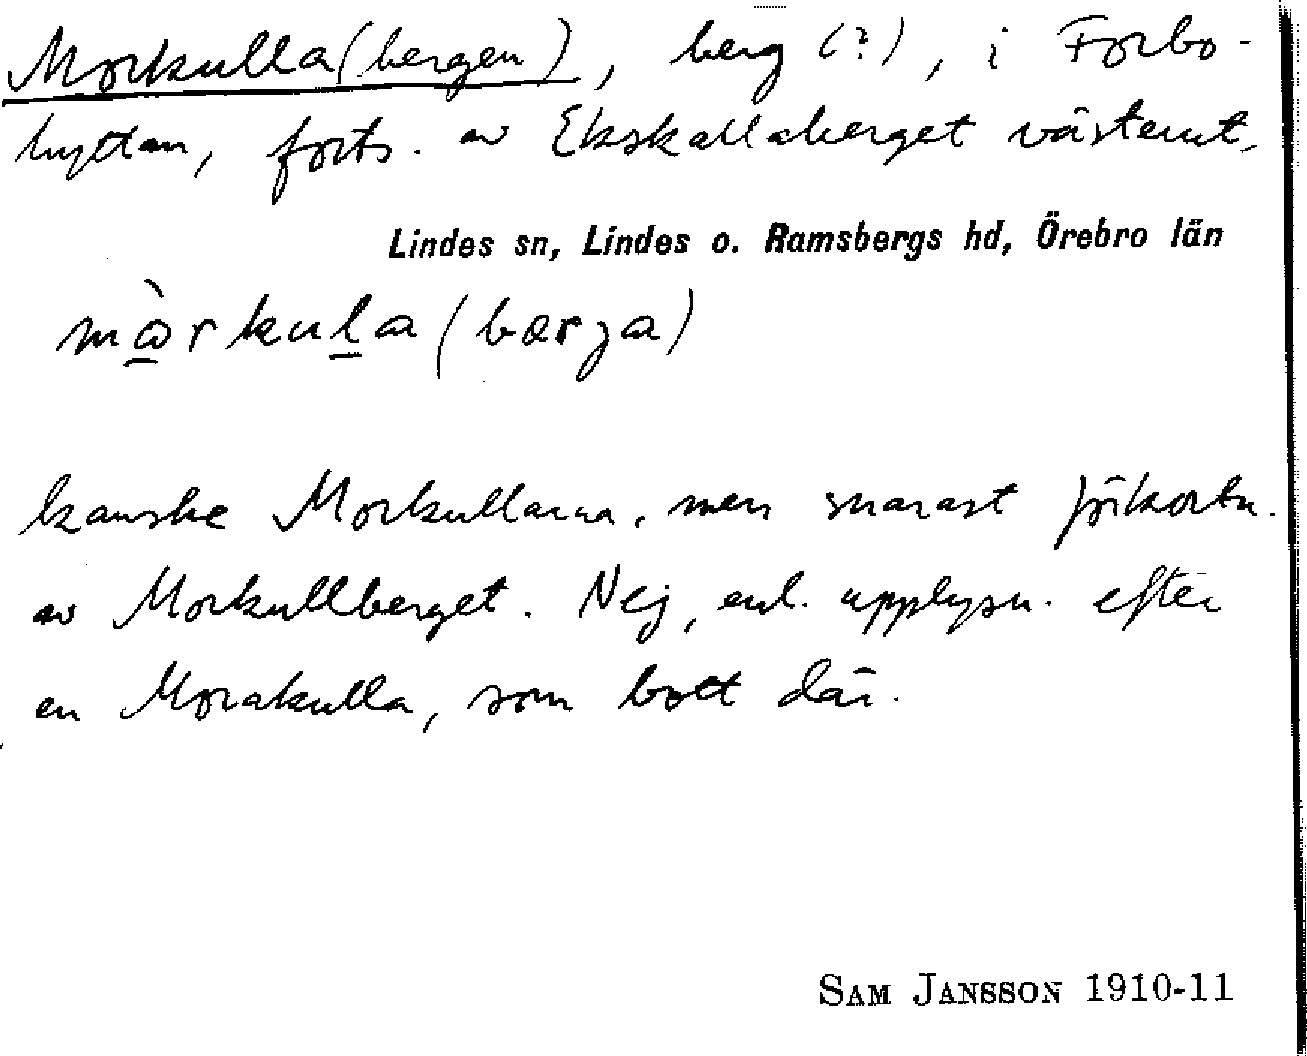 Morkulla(bergen), berg (?), i Forbo-
hyttan, forts. av Ekskallaberget västerut,
Lindes sn, Lindes o. Ramsbergs hd, Örebro län
mò̱rkuḻa (bærja)
kanske Morkullarna, men snarast förkortn.
av Morkullberget. Nej, enl. upplysn. efter
en Morakulla, som bott där.
SAM JANSSON 1910-11